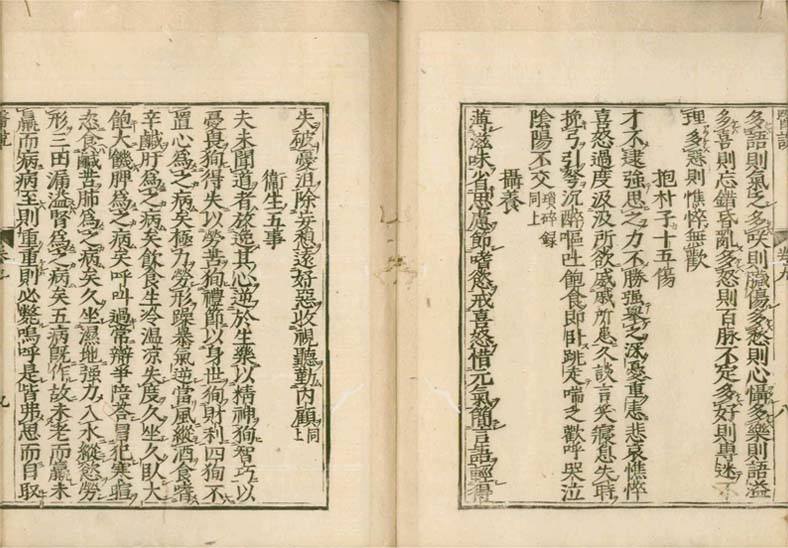 醫說
卷九
八
多語則氣乏多咲則臟傷多愁則心懾多樂則語溢
多喜則忘錯昏亂多怒則百脉不定多好則專迷不
理多惡則憔悴無歡
抱朴子十五傷
才不逮強思之力不勝強舉之深憂重恚悲哀憔悴
喜怒過度汲汲所欲戚戚所患久談言笑寢息失時
挽弓引弩沉醉嘔吐飽食即卧跳走喘乏歡呼哭泣
陰陽不交瑣碎録同上
攝養
薄滋味省思慮節嗜慾戒喜怒惜元氣簡言語輕得
失破憂沮除妄想遠好惡收視聽勤內顧同上
衞生五事
夫未聞道者放逸其心逆於生樂以精神狥智巧以
憂畏狥得失以勞苦狥禮節以身世狥財利四狥不
置心爲之病矣極力勞形躁暴氣逆當風縱酒食嗜
辛鹹肝爲之病矣飲食生冷温凉失度久坐久卧大
飽大饑脾爲之病矣呼叫過常辯爭陪答冒犯寒暄
恣食鹹苦肺爲之病矣久坐濕地强力入水縱慾勞
形三田漏溢腎爲之病矣五病旣作故未老而羸未
羸而病病至則重重則必斃嗚呼是皆弗思而自取
醫說
九